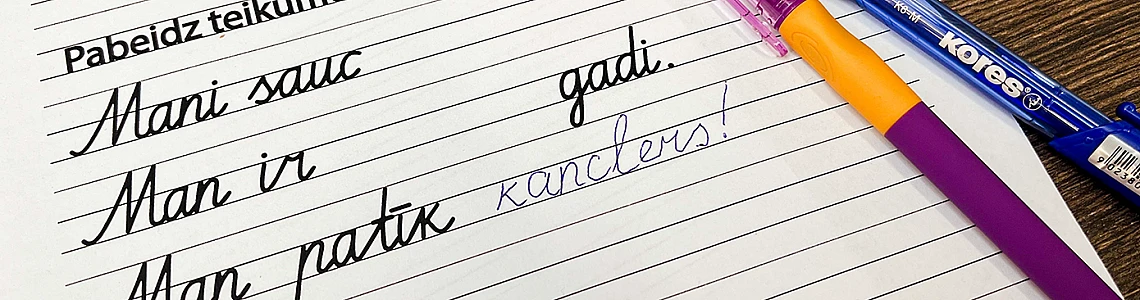 Pabeidz teikumu
Mani sauc
Man ir gadi.
Man patīk kanclers!
K6-M
Kores